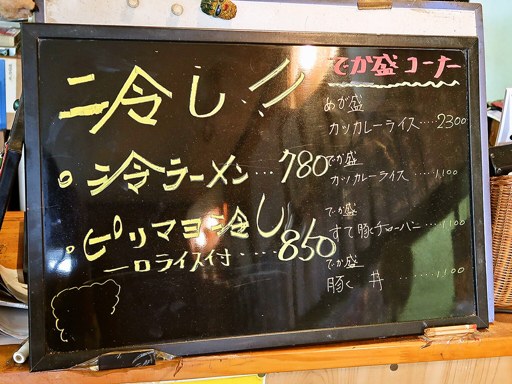 冷し!!
冷ラーメン…780
ピリマヨ冷し
一口ライス付……850
でか盛コーナー
めが盛
カツカレーライス……2300
でか盛
カツカレーライス……1,100
でか盛
すて豚チャーハン……1,100
でか盛
豚丼………1,100